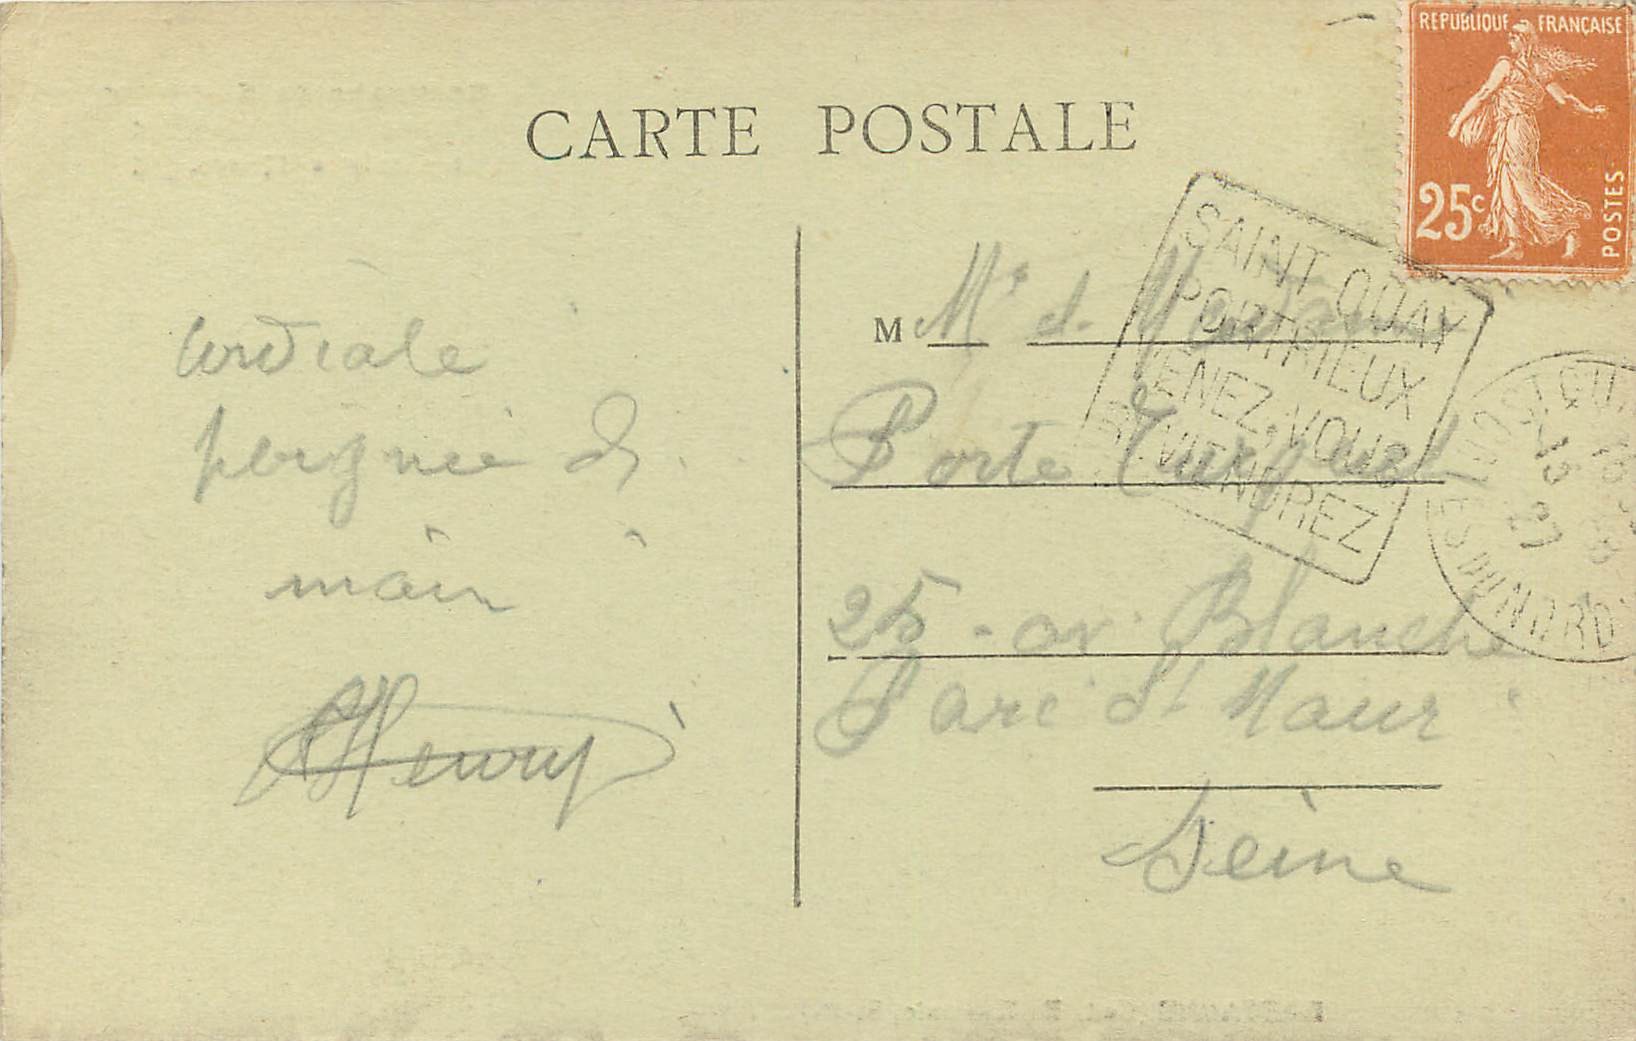 CARTE POSTALE
REPUBLIQUE FRANÇAISE
25c
POSTES
SAINT QUAY
PORTRIEUX
VENEZ, VOUS
REVIENDREZ
Cordiale
poignée de
main
Henry
M Mr de
Porte
25 - av. Blanche
Parc St Maur
Seine